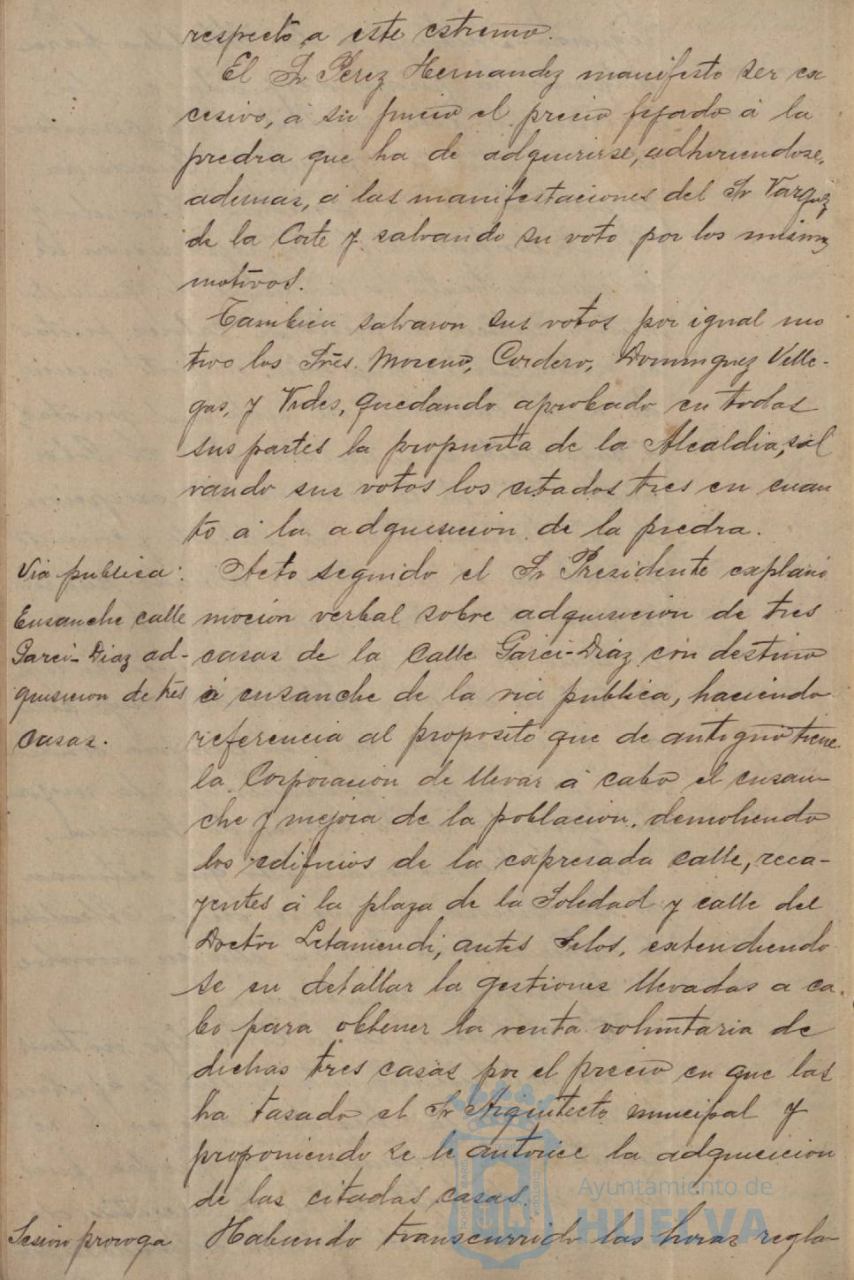 respecto a este estremo.
El Sr Perez Hernandez manifesto ser ex
cesivo, á su juicio el precio fijado á la
piedra que ha de adquirirse, adhiriendose,
ademas, á las manifestaciones del Sr Vazquez
de la Corte y salvando su voto por los mismos
motivos.
Tambien salvaron sus votos por igual mo
tivo los Sres. Moreno, Cordero, Dominguez Ville-
gas, y Vides, quedando aprobado en todas
sus partes la propuesta de la Alcaldia, sal
vando sus votos los citados tres en cuan
to á la adquisicion de la piedra.
Via publica.
Ensanche calle
Garci-Diaz ad-
quisicion de tres
casas.
Acto seguido el Sr Presidente explanó
moción verbal sobre adquisicion de tres
casas de la calle Garci-Diáz con destino
á ensanche de la via publica, haciendo
referencia al proposito que de antiguo tiene
la Corporacion de llevar á cabo el ensan-
che y mejora de la población, demoliendo
los edificios de la expresada calle, reca-
yentes á la plaza de la Soledad y calle del
Doctor Letamendi, antes Silos, extendiendo
se en detallar la gestiones llevadas a ca-
bo para obtener la venta voluntaria de
dichas tres casas por el precio en que las
ha tasado el Sr Arquitecto municipal y
proponiendo se le autorice la adquisicion
de las citadas casas.
Sesion proroga
Habiendo transcurrido las horas regla-
Ayuntamiento de
HUELVA